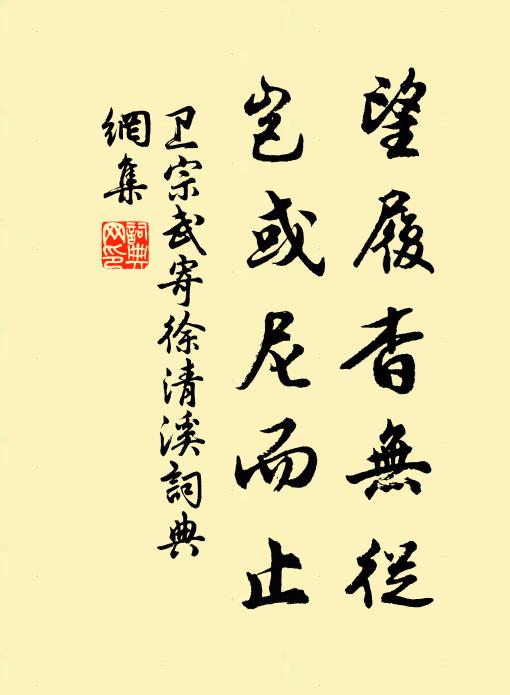 望履杳無從
豈或尼而止
卫宗武寄徐清溪詞典
網集
詞典
网印